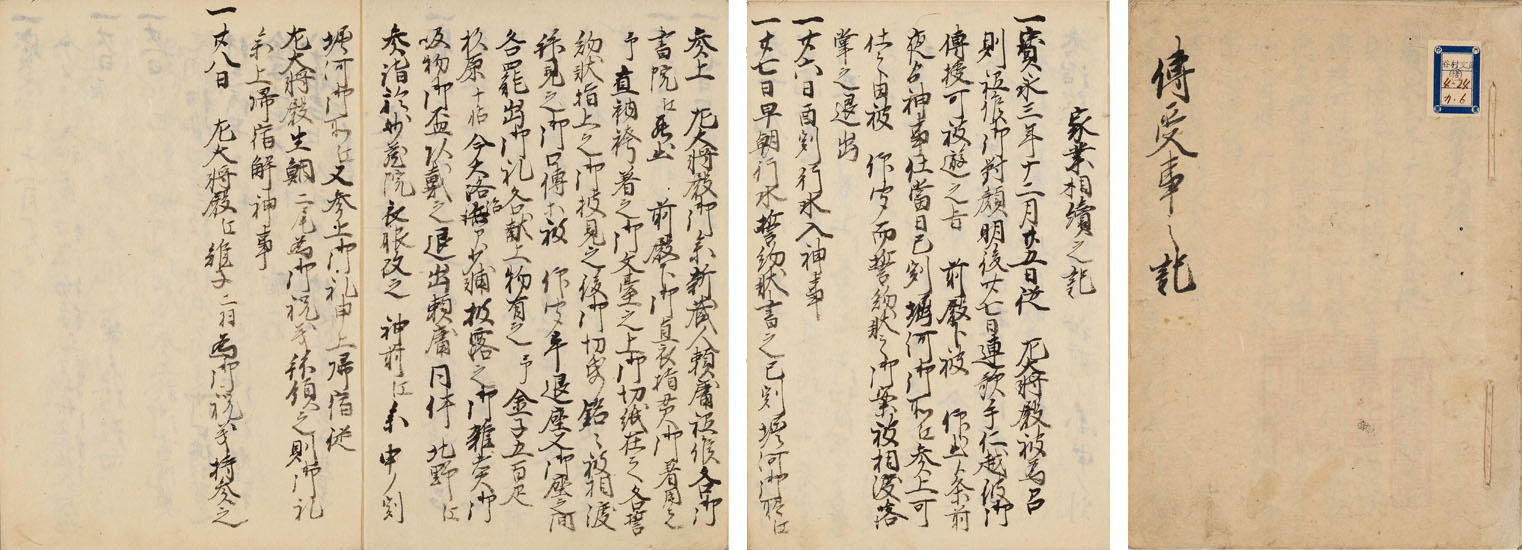 傳受事之記
谷村文庫
4-24
カ・6
家業相續之記
一寳永三年十二月廿五日從 左大將殿被為召
則祗候御對顔明後廿七日連歌手仁越波御
傳授可被遊之旨 前殿下被 仰出候条前
夜占神事仕當日巳刻堀河御所江参上可
仕之由被 仰聞而誓約状之御案被相渡略
掌之退出
一廿六日酉刻行水入神事
一廿七日早朝行水誓約状書之巳刻堀河御所江
参上 左大將殿御 新蔵人頼庸祗候各御
書院江 前殿下御直衣指貫御着用
予直衲袴着之御文臺之上御切紙在之各誓
約状指上之御披見之後御切帋銘々被相渡
拝見之御口傳等被 仰聞卒退座又御座之間
各罷出御礼各献上物有之予金子五百疋
杉原十帖今大路治部少輔披露之御雑煮御
吸物御盃頂戴之退出頼庸同伴北野江
参詣於妙蔵院衣服改之神前江 申ノ刻
堀河御所江又参上御礼申上歸宿從
左大將殿生鯛二尾為御祝義拝領之則御礼
参上歸宿解神事
一廿八日 左大將殿江雉子二羽為御祝義持参之